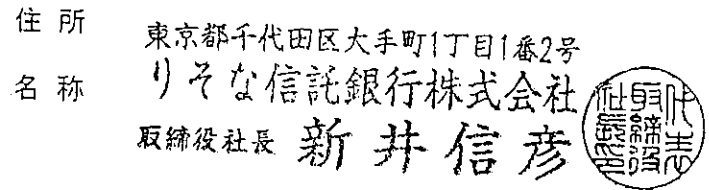 住所 東京都千代田区大手町1丁目1番2号
名称 りそな信託銀行株式会社
取締役社長 新井信彦
代表
取締役
社長之印